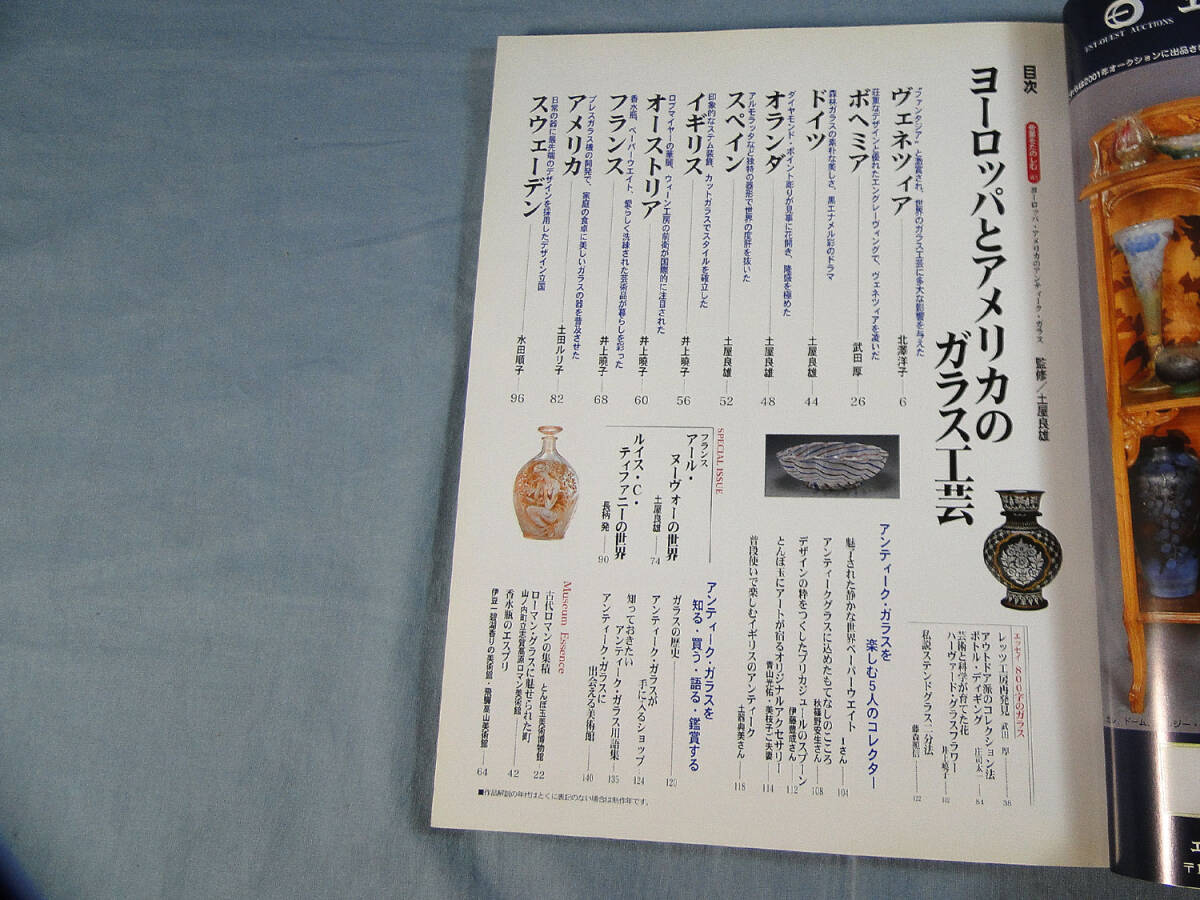 目次
骨董をたのしむ
ヨーロッパ・アメリカのアンティーク・ガラス
監修/土屋良雄
ヨーロッパとアメリカの
ガラス工芸
"ファンタジア"と激賞され、世界のガラス工芸に多大な影響を与えた
ヴェネツィア 北澤洋子 6
荘重なデザインと優れたエングレーヴィングで、ヴェネツィアを凌いだ
ボヘミア 武田 厚 26
森林ガラスの素朴な美しさ、黒エナメル彩のドラマ
ドイツ 土屋良雄 44
ダイヤモンド・ポイント彫りが見事に花開き、隆盛を極めた
オランダ 土屋良雄 48
アルモラッタなど独特の器形で世界の度肝を抜いた
スペイン 土屋良雄 52
印象的なステム装飾、カットガラスでスタイルを確立した
イギリス 井上暁子 56
ロブマイヤーの華麗、ウィーン工房の前衛が国際的に注目された
オーストリア 井上暁子 60
香水瓶、ペーパーウエイト、愛らしく洗練された芸術品が暮らしを彩った
フランス 井上暁子 68
プレスガラス機の開発で、家庭の食卓に美しいガラスの器を普及させた
アメリカ 土田ルリ子 82
日常の器に最先端のデザインを採用したデザイン立国
スウェーデン 水田順子 96
SPECIAL ISSUE
フランス
アール・
ヌーヴォーの世界
土屋良雄 74
ルイス・C・
ティファニーの世界
長柄 発 90
エッセイ 800字のガラス
レッツ工房再発見 武田 厚 38
アウトドア派のコレクション法
ボトル・ディギング 庄司太一 84
芸術と科学が育てた花
ハーヴァード・グラスフラワー 井上暁子 102
私説ステンドグラス二分法
藤森照信 122
アンティーク・ガラスを
楽しむ5人のコレクター
魅了された静かな世界ペーパーウエイト
Iさん 104
アンティークグラスに込めたもてなしのこころ
秋篠野安生さん 108
デザインの粋をつくしたプリカジュールのスプーン
伊藤豊成さん 112
とんぼ玉にアートが宿るオリジナルアクセサリー
青山光佑・美枝子ご夫妻 114
普段使いで楽しむイギリスのアンティーク
土器典美さん 118
アンティーク・ガラスを
知る・買う・語る・鑑賞する
ガラスの歴史 120
アンティーク・ガラスが
手に入るショップ 124
知っておきたい
アンティーク・ガラス用語集 135
アンティーク・ガラスに
出会える美術館 140
Museum Essence
古代ロマンの集積 とんぼ玉美術博物館 22
ローマン・グラスに魅せられた町
山ノ内町立志賀高原ロマン美術館 42
香水瓶のエスプリ
伊豆一碧湖香りの美術館・飛騨高山美術館 64
■作品解説の年代はとくに表記のない場合は制作年です。
EST-OUEST AUCTIONS
2001年オークションに出品さ